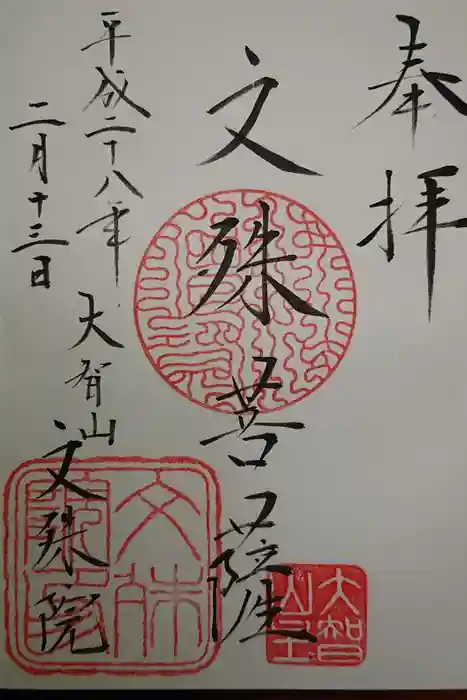 奉拝
文殊菩薩
平成二十八年
二月十三日
大智山
文殊院
大智
山主